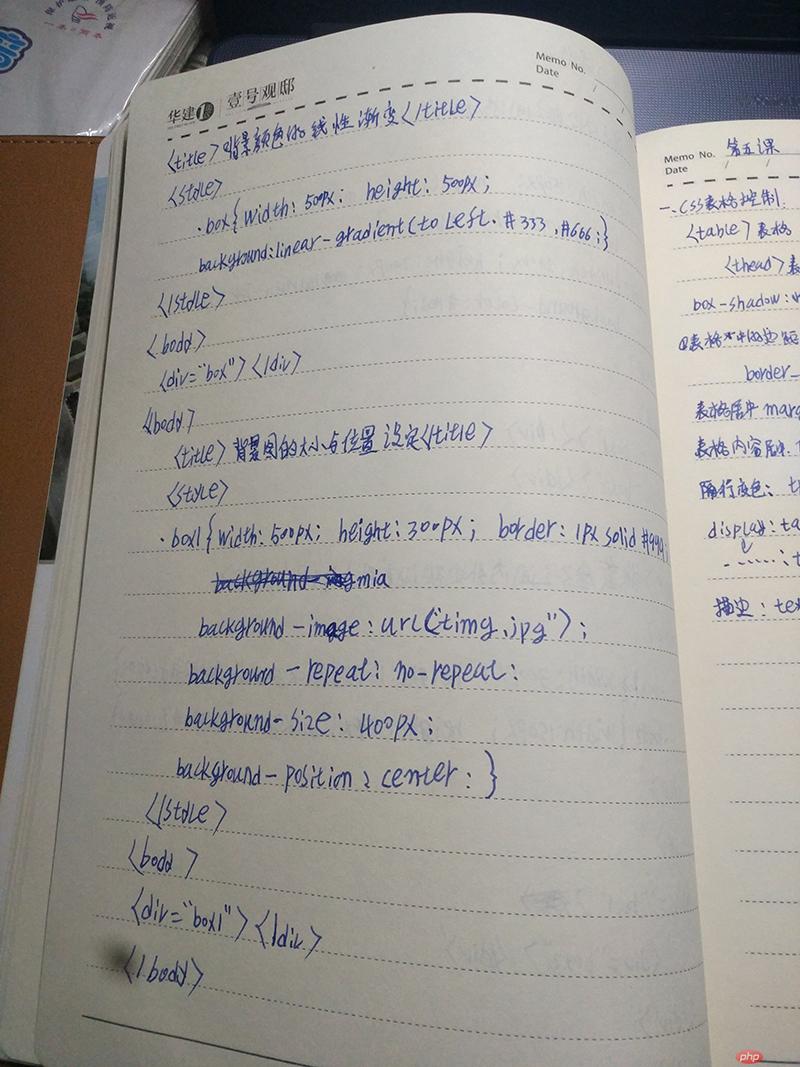 华建1 壹号观邸
Memo No.
Date / /
<title>背景颜色的线性渐变</title>
<style>
.box{width: 500px; height: 500px;
background:linear-gradient(to left. #333 ,#666;}
</style>
<body>
<div="box"></div>
<body>
<title>背景图的大小与位置设定</title>
<style>
.box1{width: 500px; height: 300px; border: 1px solid #999;
background-image: url("timg.jpg");
background-repeat: no-repeat:
background-size: 400px;
background-position: center: }
</style>
<body>
<div="box1"></div>
</body>
Memo No. 第五课
Date / /
一、CSS表格控制.
<table>表格
<thead>表
box-shadow:
border-
表格居中 marg
表格内容居中.
隔行变色: t
display: ta
描边: te
php